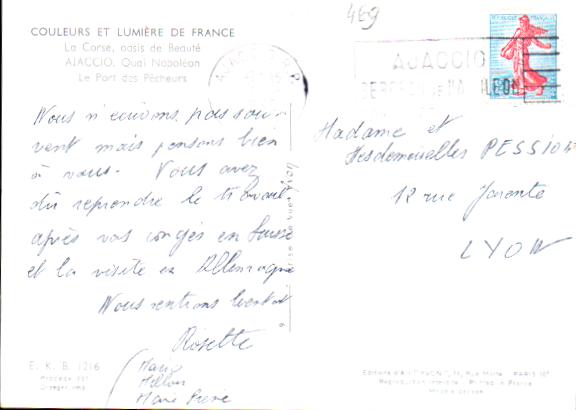 469
COULEURS ET LUMIÈRE DE FRANCE
La Corse, oasis de Beauté
AJACCIO. Quai Napoléon
Le Port des Pêcheurs
AJACCIO
Nous n'écrivons pas sou-
vent mais pensons bien
à vous. Vous avez
dû reprendre le travail
après vos congés en Suisse
et la visite en Allemagne
Nous rentrons bientôt
Rosette
Marie
Madame et
Mesdemoiselles PESSION
12 rue Jarente
LYON
E. K. B. 1216
Editions d'Art "YVON", 15, Rue Martel - PARIS 10e
Reproduction interdite - Printed in France